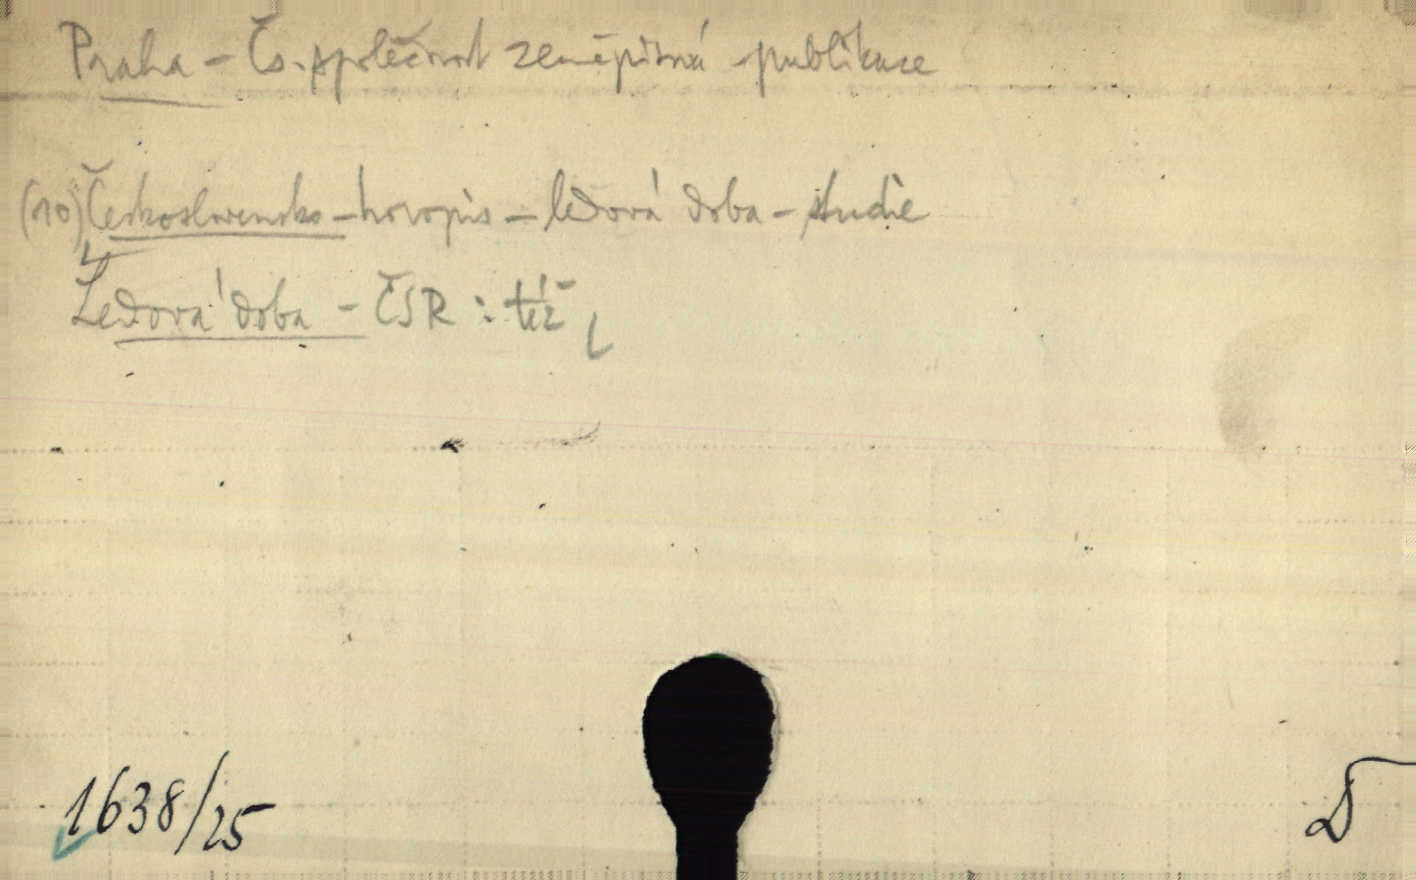 Praha - Čs. společnost zeměpisná - publikace
(10) Československo - horopis - ledová doba - studie
Ledová doba - ČSR : též
1638/25
D